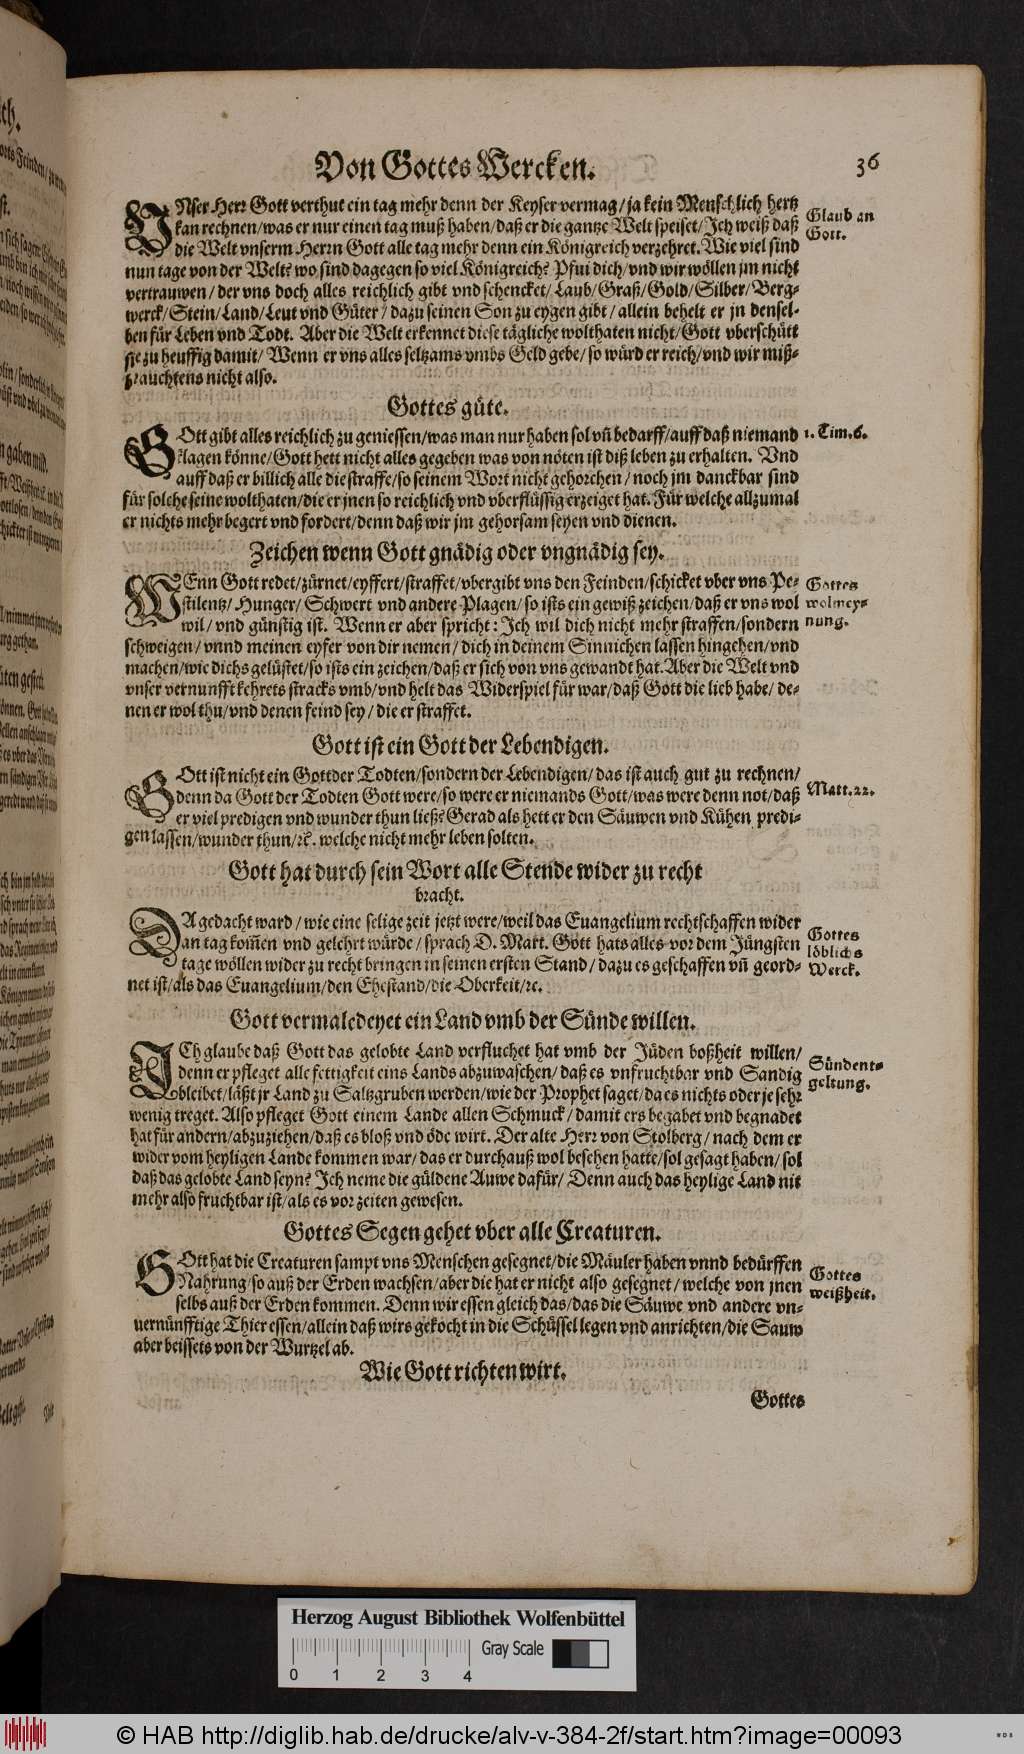 Von Gottes Wercken. 36
VNser Herr Gott verthut ein tag mehr denn der Keyser vermag / ja kein Menschlich hertz
kan rechnen / was er nur einen tag muß haben / daß er die gantze Welt speiset / Ich weiß daß
die Welt vnserm Herrn Gott alle tag mehr denn ein Königreich verzehret. Wie viel sind
nun tage von der Welt? wo sind dagegen so viel Königreich? Pfui dich / vnd wir wöllen jm nicht
vertrauwen / der vns doch alles reichlich gibt vnd schencket / Laub / Graß / Gold / Silber / Berg-
werck / Stein / Land / Leut vnd Güter / dazu seinen Son zu eygen gibt / allein behelt er jn densel-
ben für Leben vnd Todt. Aber die Welt erkennet diese tägliche wolthaten nicht / Gott vberschütt
sie zu heuffig damit / Wenn er vns alles seltzams vmbs Geld gebe / so würd er reich / vnd wir miß-
brauchtens nicht also.
Glaub an
Gott.
Gottes güte.
GOtt gibt alles reichlich zu geniessen / was man nur haben sol vñ bedarff / auff daß niemand
klagen könne / Gott hett nicht alles gegeben was von nöten ist diß leben zu erhalten. Vnd
auff daß er billich alle die straffe / so seinem Wort nicht gehorchen / noch jm danckbar sind
für solche seine wolthaten / die er jnen so reichlich vnd vberflüssig erzeiget hat. Für welche allzumal
er nichts mehr begert vnd fordert / denn daß wir jm gehorsam seyen vnd dienen.
1. Tim. 6.
Zeichen wenn Gott gnädig oder vngnädig sey.
WEnn Gott redet / zürnet / eyffert / straffet / vbergibt vns den Feinden / schicket vber vns Pe-
stilentz / Hunger / Schwert vnd andere Plagen / so ists ein gewiß zeichen / daß er vns wol
wil / vnd günstig ist. Wenn er aber spricht: Ich wil dich nicht mehr straffen / sondern
schweigen / vnnd meinen eyfer von dir nemen / dich in deinem Sinnichen lassen hingehen / vnd
machen / wie dichs gelüstet / so ists ein zeichen / daß er sich von vns gewandt hat. Aber die Welt vnd
vnser vernunfft kehrets stracks vmb / vnd helt das Widerspiel für war / daß Gott die lieb habe / de-
nen er wol thu / vnd denen feind sey / die er straffet.
Gottes
wolmey-
nung.
Gott ist ein Gott der Lebendigen.
GOtt ist nicht ein Gott der Todten / sondern der Lebendigen / das ist auch gut zu rechnen /
denn da Gott der Todten Gott were / so were er niemands Gott / was were denn not / daß
er viel predigen vnd wunder thun ließ? Gerad als hett er den Säuwen vnd Kühen predi-
gen lassen / wunder thun / ꝛc. welche nicht mehr leben solten.
Matt. 22.
Gott hat durch sein Wort alle Stende wider zu recht
bracht.
DA gedacht ward / wie eine selige zeit jetzt were / weil das Euangelium rechtschaffen wider
an tag kom̃en vnd gelehrt würde / sprach D. Mart. Gott hats alles vor dem Jüngsten
tage wöllen wider zu recht bringen in seinen ersten Stand / dazu es geschaffen vñ geord-
net ist / als das Euangelium / den Ehestand / die Oberkeit / ꝛc.
Gottes
löblichs
Werck.
Gott vermaledeyet ein Land vmb der Sünde willen.
ICh glaube daß Gott das gelobte Land verfluchet hat vmb der Jüden boßheit willen /
denn er pfleget alle fettigkeit eins Lands abzuwaschen / daß es vnfruchtbar vnd Sandig
bleibet / läßt jr Land zu Saltzgruben werden / wie der Prophet saget / da es nichts oder je sehr
wenig treget. Also pfleget Gott einem Lande allen Schmuck / damit ers begabet vnd begnadet
hat für andern / abzuziehen / daß es bloß vnd öde wirt. Der alte Herr von Stolberg / nach dem er
wider vom heyligen Lande kommen war / das er durchauß wol besehen hatte / sol gesagt haben / sol
daß das gelobte Land seyn? Ich neme die güldene Auwe dafür / Denn auch das heylige Land nit
mehr also fruchtbar ist / als es vor zeiten gewesen.
Sündent-
geltung.
Gottes Segen gehet vber alle Creaturen.
GOtt hat die Creaturen sampt vns Menschen gesegnet / die Mäuler haben vnnd bedürffen
Nahrung / so auß der Erden wachsen / aber die hat er nicht also gesegnet / welche von jnen
selbs auß der Erden kommen. Denn wir essen gleich das / das die Säuwe vnd andere vn-
uernünfftige Thier essen / allein daß wirs gekocht in die Schüssel legen vnd anrichten / die Sauw
aber beissets von der Wurtzel ab.
Gottes
weißheit.
Wie Gott richten wirt.
Gottes
Herzog August Bibliothek Wolfenbüttel
Gray Scale
0 1 2 3 4
© HAB http://diglib.hab.de/drucke/alv-v-384-2f/start.htm?image=00093